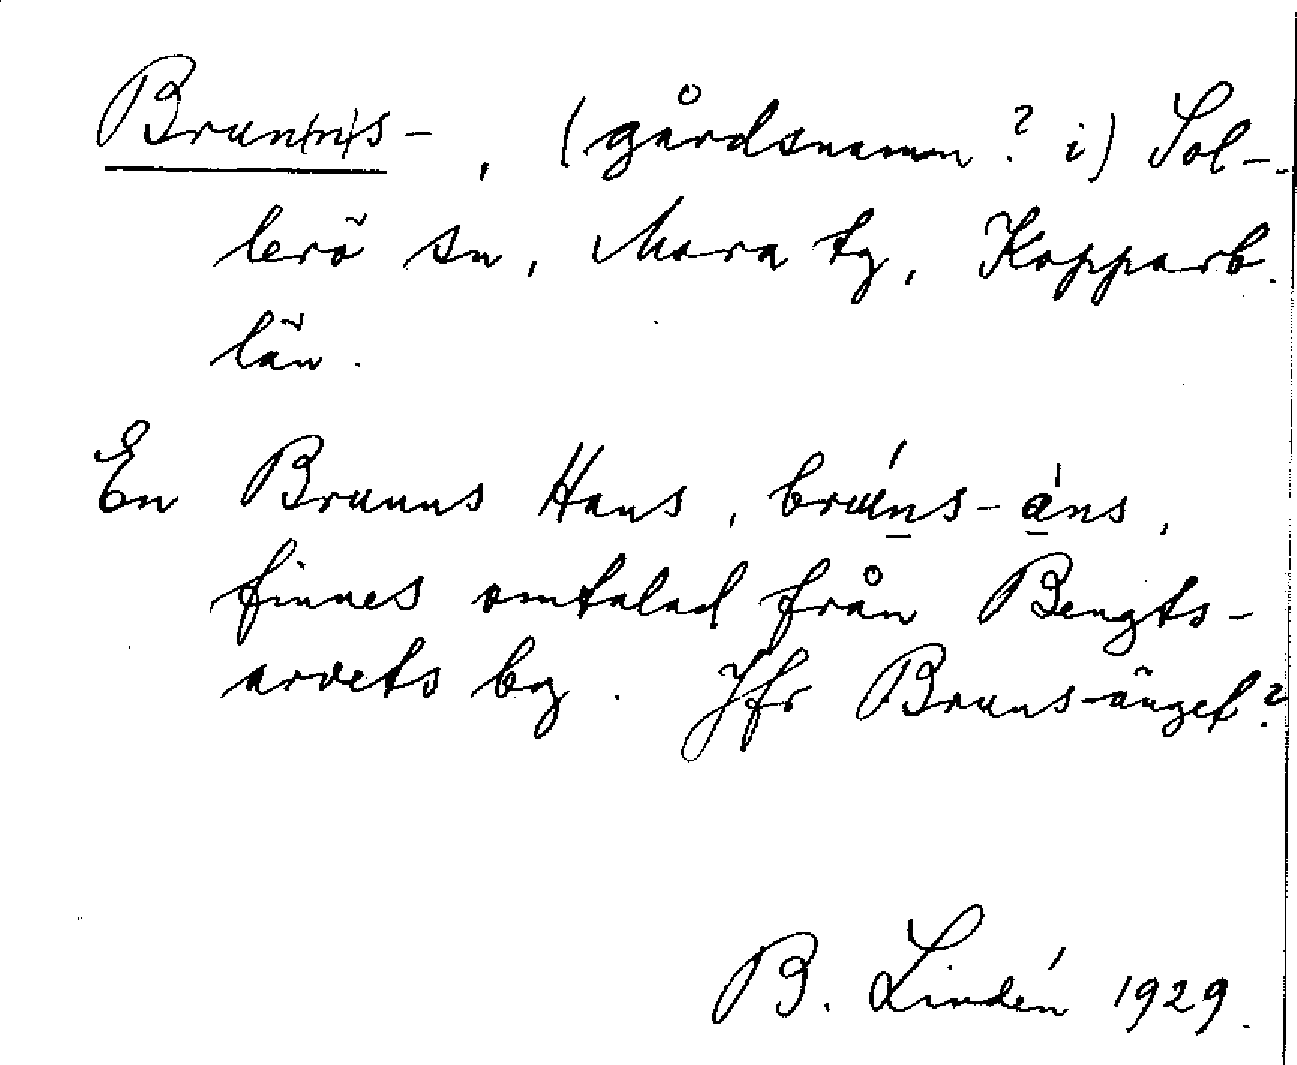 Brun(n)s- , (gårdsnamn? i) Sol-
lerö sn, Mora tg, Kopparb.
län.
En Brunns Hans, brúns-áns,
finnes omtalad från Bengts-
arvets by. Jfr Bruns-änget?
B. Lindén 1929.